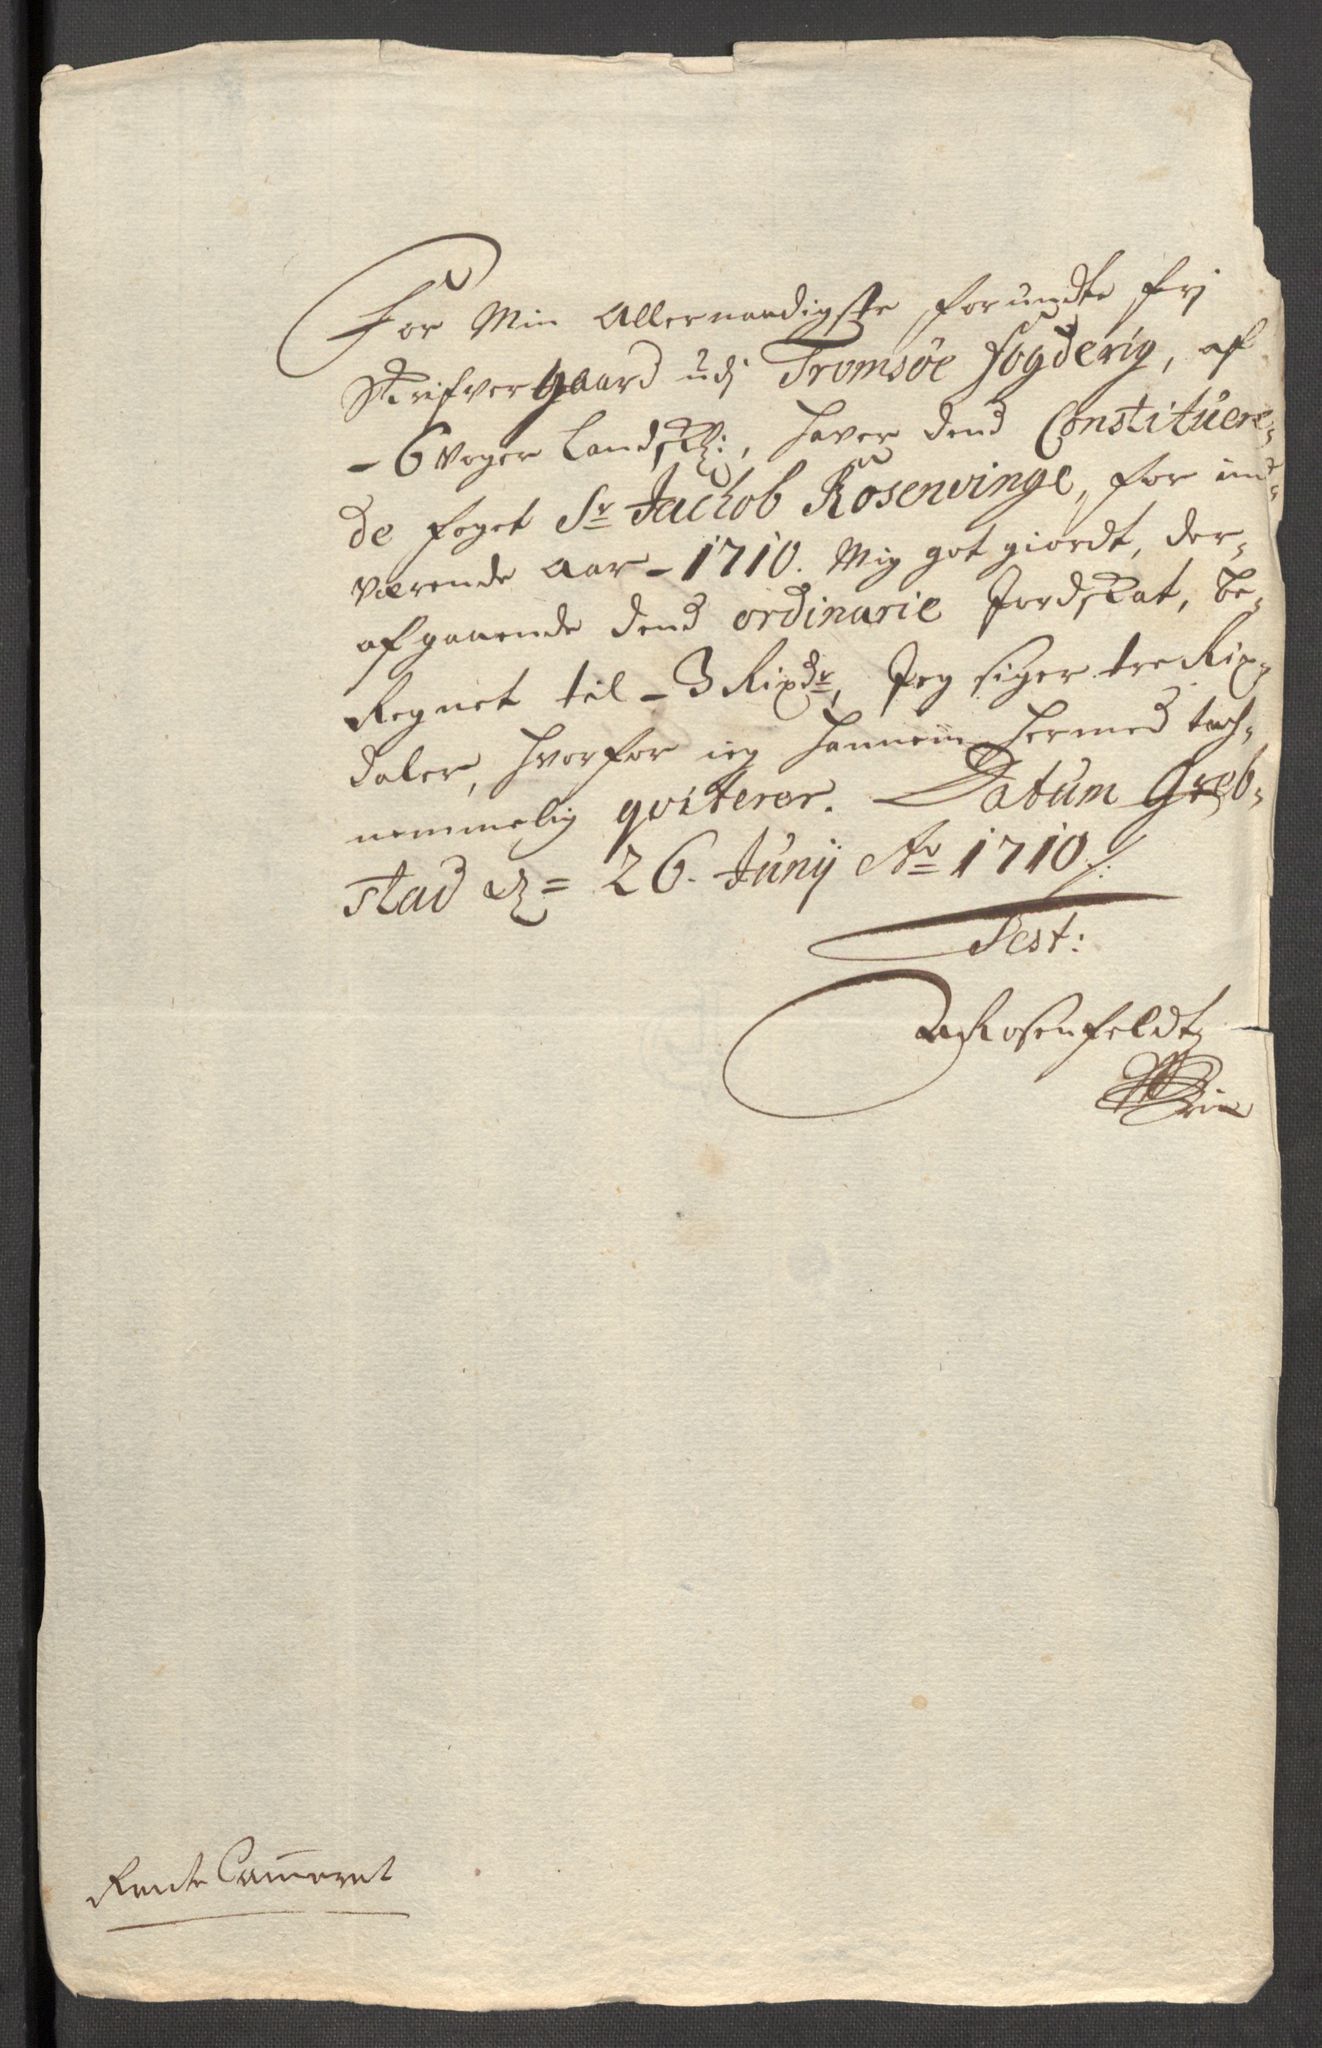 For Min Allernaadigste forundte frj
Skrifver gaard udj Tromsøe fogderig, af
- 6 voger Landskl:, haver dend Constituere-
de foget Sr Jachob Rosenvinge, for ind-
værende Aar - 1710. Mig got giordt, der-
afgaaende dend ordinarie Jordskat, be-
Regnet til - 3 Rixdr, Jeg siger tre Rix-
daler, hvorfor ieg hannem hermed tach-
nemmelig qviterer. Datum Greb-
stad d = 26. Junij Ao 1710 /:
Test:
Rosenfeldt
Rente Cammeret